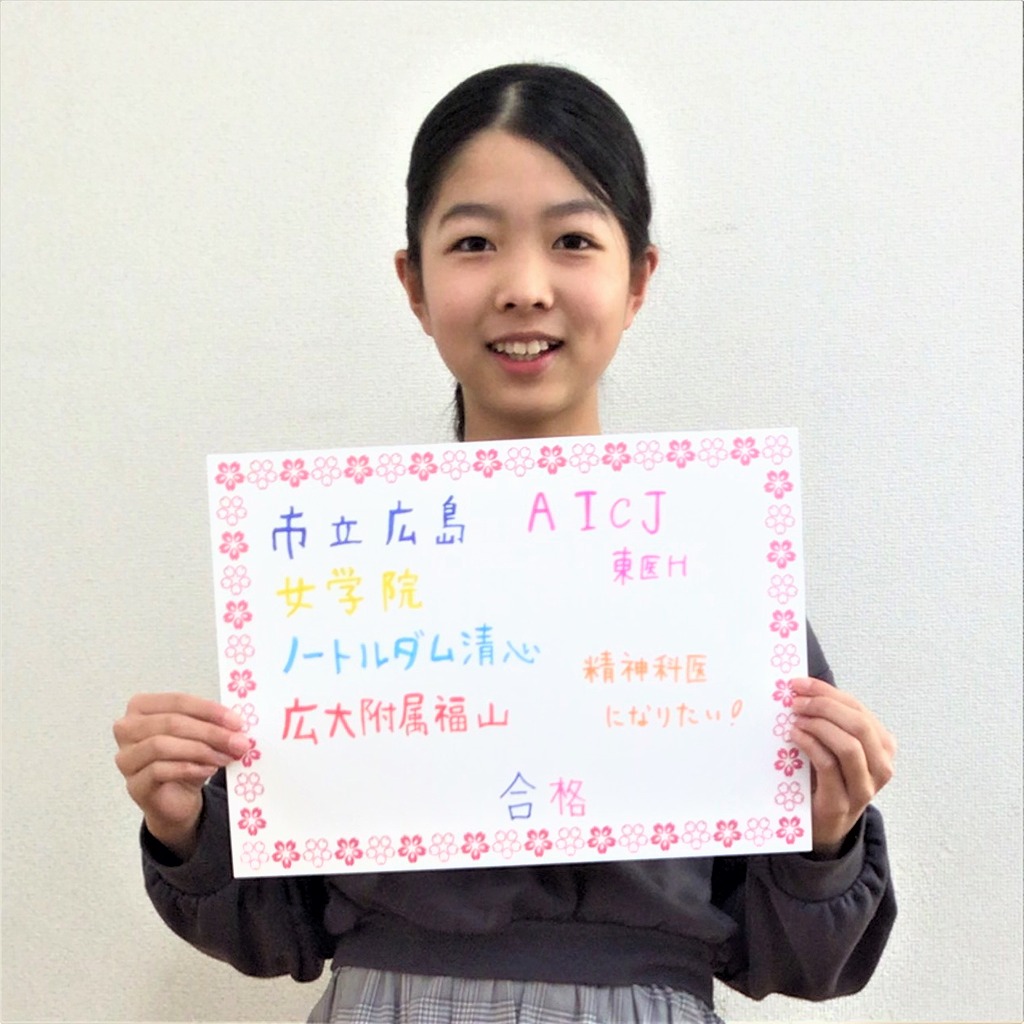 市立広島
女学院
ノートルダム清心
広大附属福山
AICJ
東医H
精神科医
になりたい!
合格